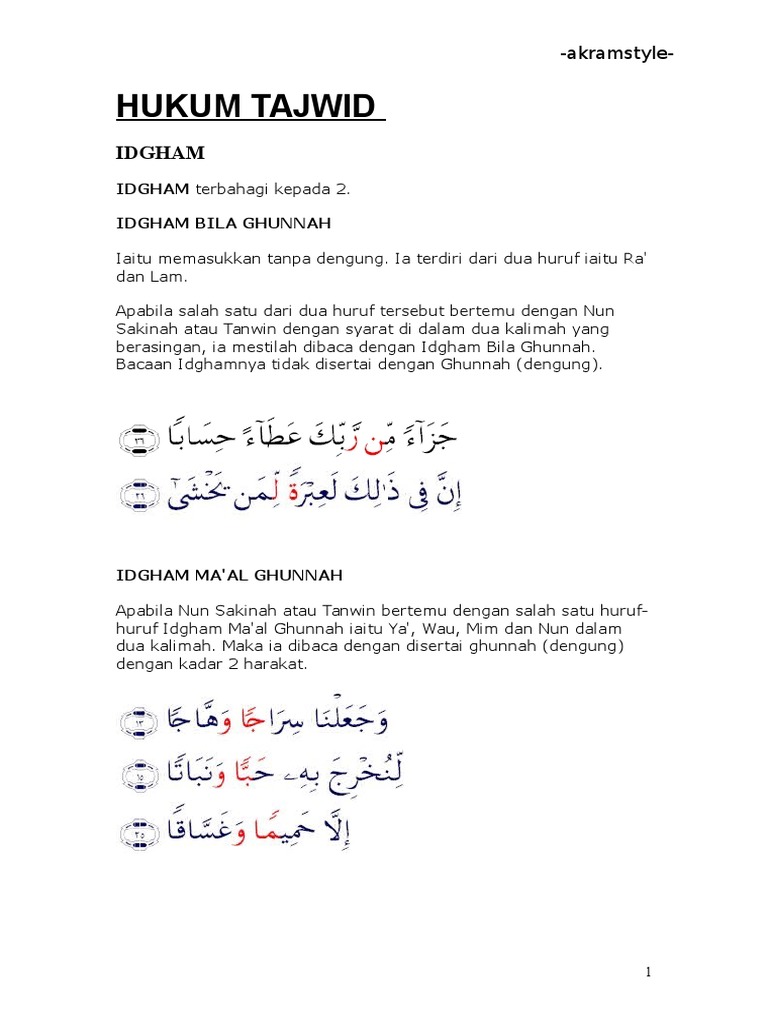 -akramstyle-
HUKUM TAJWID
IDGHAM
IDGHAM terbahagi kepada 2.
IDGHAM BILA GHUNNAH
Iaitu memasukkan tanpa dengung. Ia terdiri dari dua huruf iaitu Ra'
dan Lam.
Apabila salah satu dari dua huruf tersebut bertemu dengan Nun
Sakinah atau Tanwin dengan syarat di dalam dua kalimah yang
berasingan, ia mestilah dibaca dengan Idgham Bila Ghunnah.
Bacaan Idghamnya tidak disertai dengan Ghunnah (dengung).
جَزَآءً مِّن رَّبِّكَ عَطَآءً حِسَابًا ٣٦
إِنَّ فِى ذَٰلِكَ لَعِبْرَةً لِّمَن يَخْشَىٰٓ ٢٦
IDGHAM MA'AL GHUNNAH
Apabila Nun Sakinah atau Tanwin bertemu dengan salah satu huruf-
huruf Idgham Ma'al Ghunnah iaitu Ya', Wau, Mim dan Nun dalam
dua kalimah. Maka ia dibaca dengan disertai ghunnah (dengung)
dengan kadar 2 harakat.
وَجَعَلْنَا سِرَاجًا وَهَّاجًا ١٣
لِّنُخْرِجَ بِهِۦ حَبًّا وَنَبَاتًا ١٥
إِلَّا حَمِيمًا وَغَسَّاقًا ٢٥
1